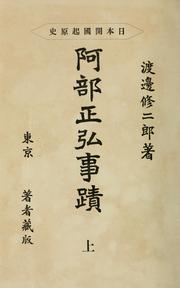 史原起國開本日
渡邊修二郎著
阿部正弘事蹟
上
東京
著者藏版